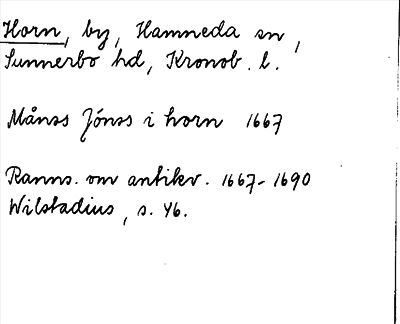 Horn, by, Hamneda sn,
Sunnerbo hd, Kronob. l.
Månss Jónss i horn 1667
Ranns. om antikv. 1667-1690
Wilstadius, s. 46.